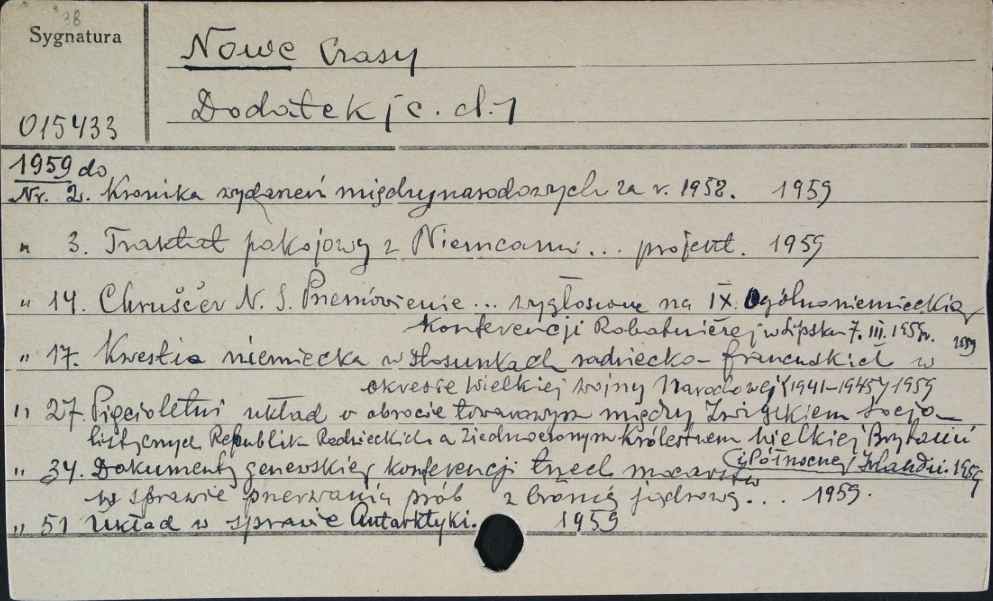 38
Sygnatura
Nowe Czasy
Dodatek /c. d./
015433
1959 do
Nr. 2. Kronika wydarzeń międzynarodowych za r. 1958. 1959
" 3. Traktat pokojowy z Niemcami... projekt. 1959
" 14. Chruščev N. S. Przemówienie ... wygłoszone na IX. Ogólnoniemieckiej
Konferencji Robotniczej w Lipsku 7. III. 1959r. 1959
" 17. Kwestia niemiecka w stosunkach radziecko-francuskich w
okresie Wielkiej Wojny Narodowej /1941-1945/ 1959
" 27. Pięcioletni układ o obrocie towarowym między Związkiem Socja-
listycznych Republik Radzieckich a Zjednoczonym Królestwem Wielkiej Brytanii
i Północnej Irlandii. 1959
" 34. Dokumenty genewskiej konferencji trzech mocarstw
w sprawie przerwania prób z bronią jądrową... 1959.
" 51 Układ w sprawie Antarktyki. 1959